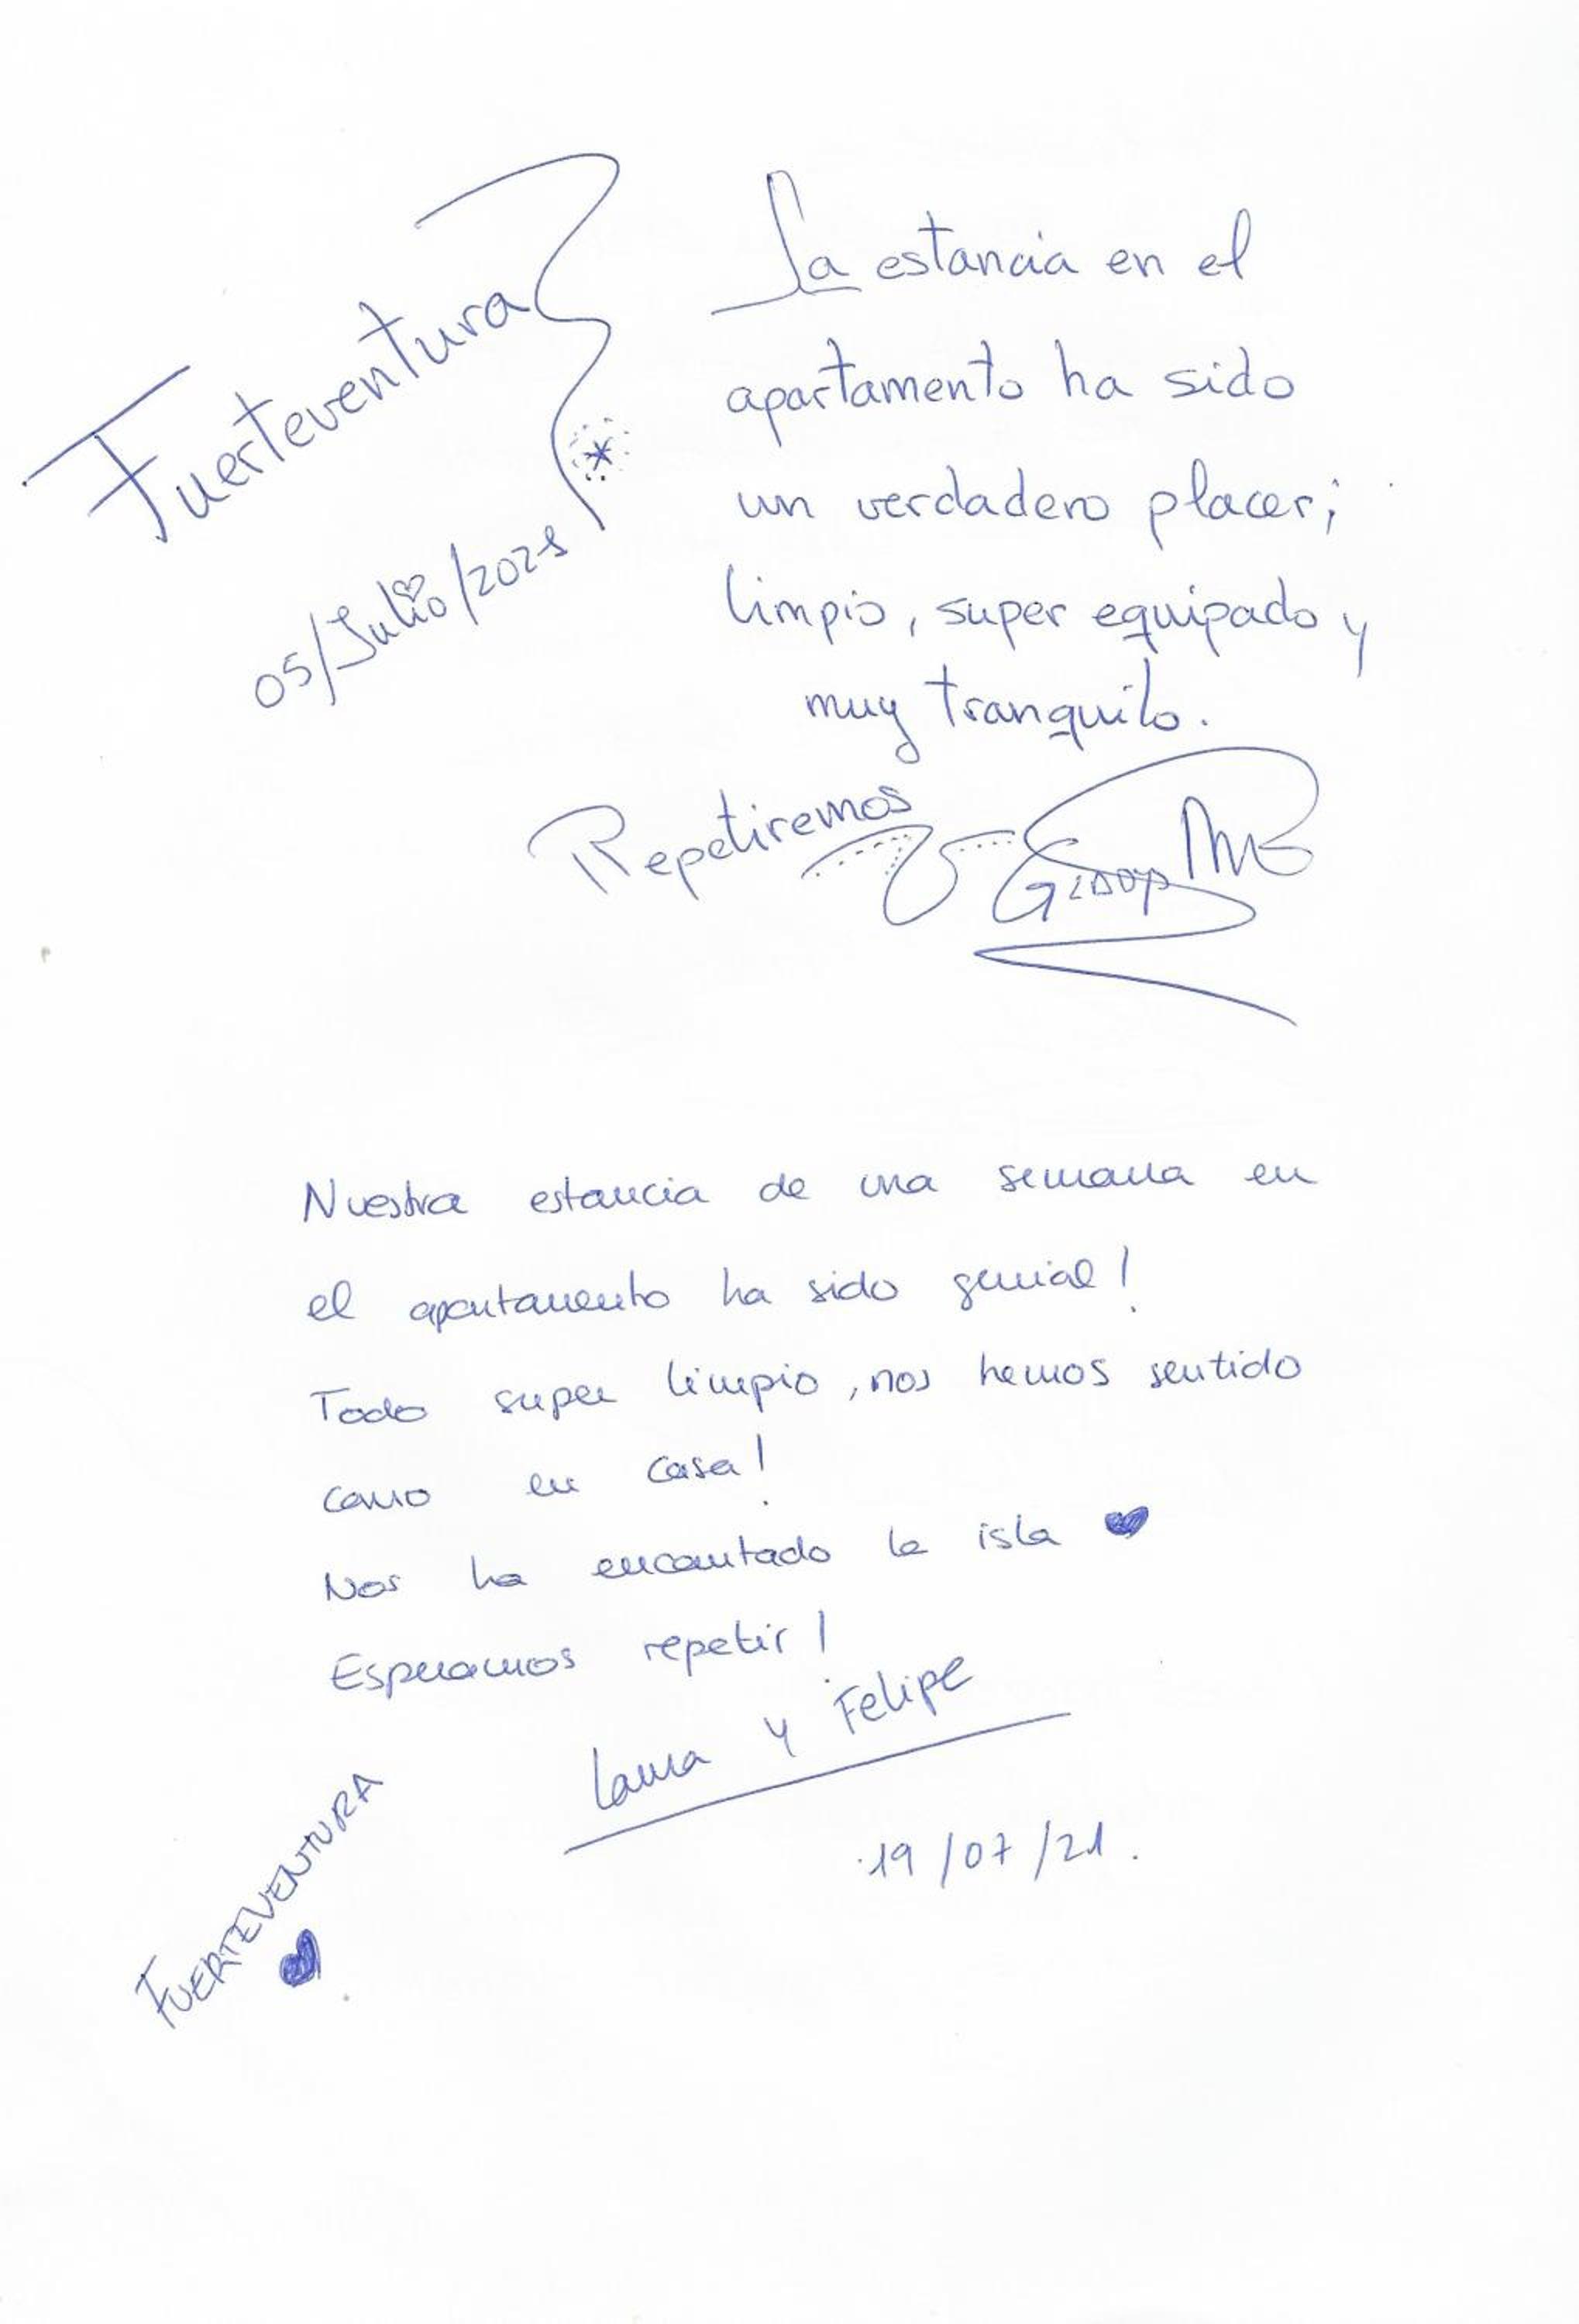 Fuerteventura
05/Julio/2021
La estancia en el
apartamento ha sido
un verdadero placer;
limpio, super equipado y
muy tranquilo.
Repetiremos
Nuestra estancia de una semana en
el apartamento ha sido genial!
Todo super limpio, nos hemos sentido
como en casa!
Nos ha encantado la isla ♥
Esperamos repetir!
Laura y Felipe
19/07/21.
FUERTEVENTURA
♥